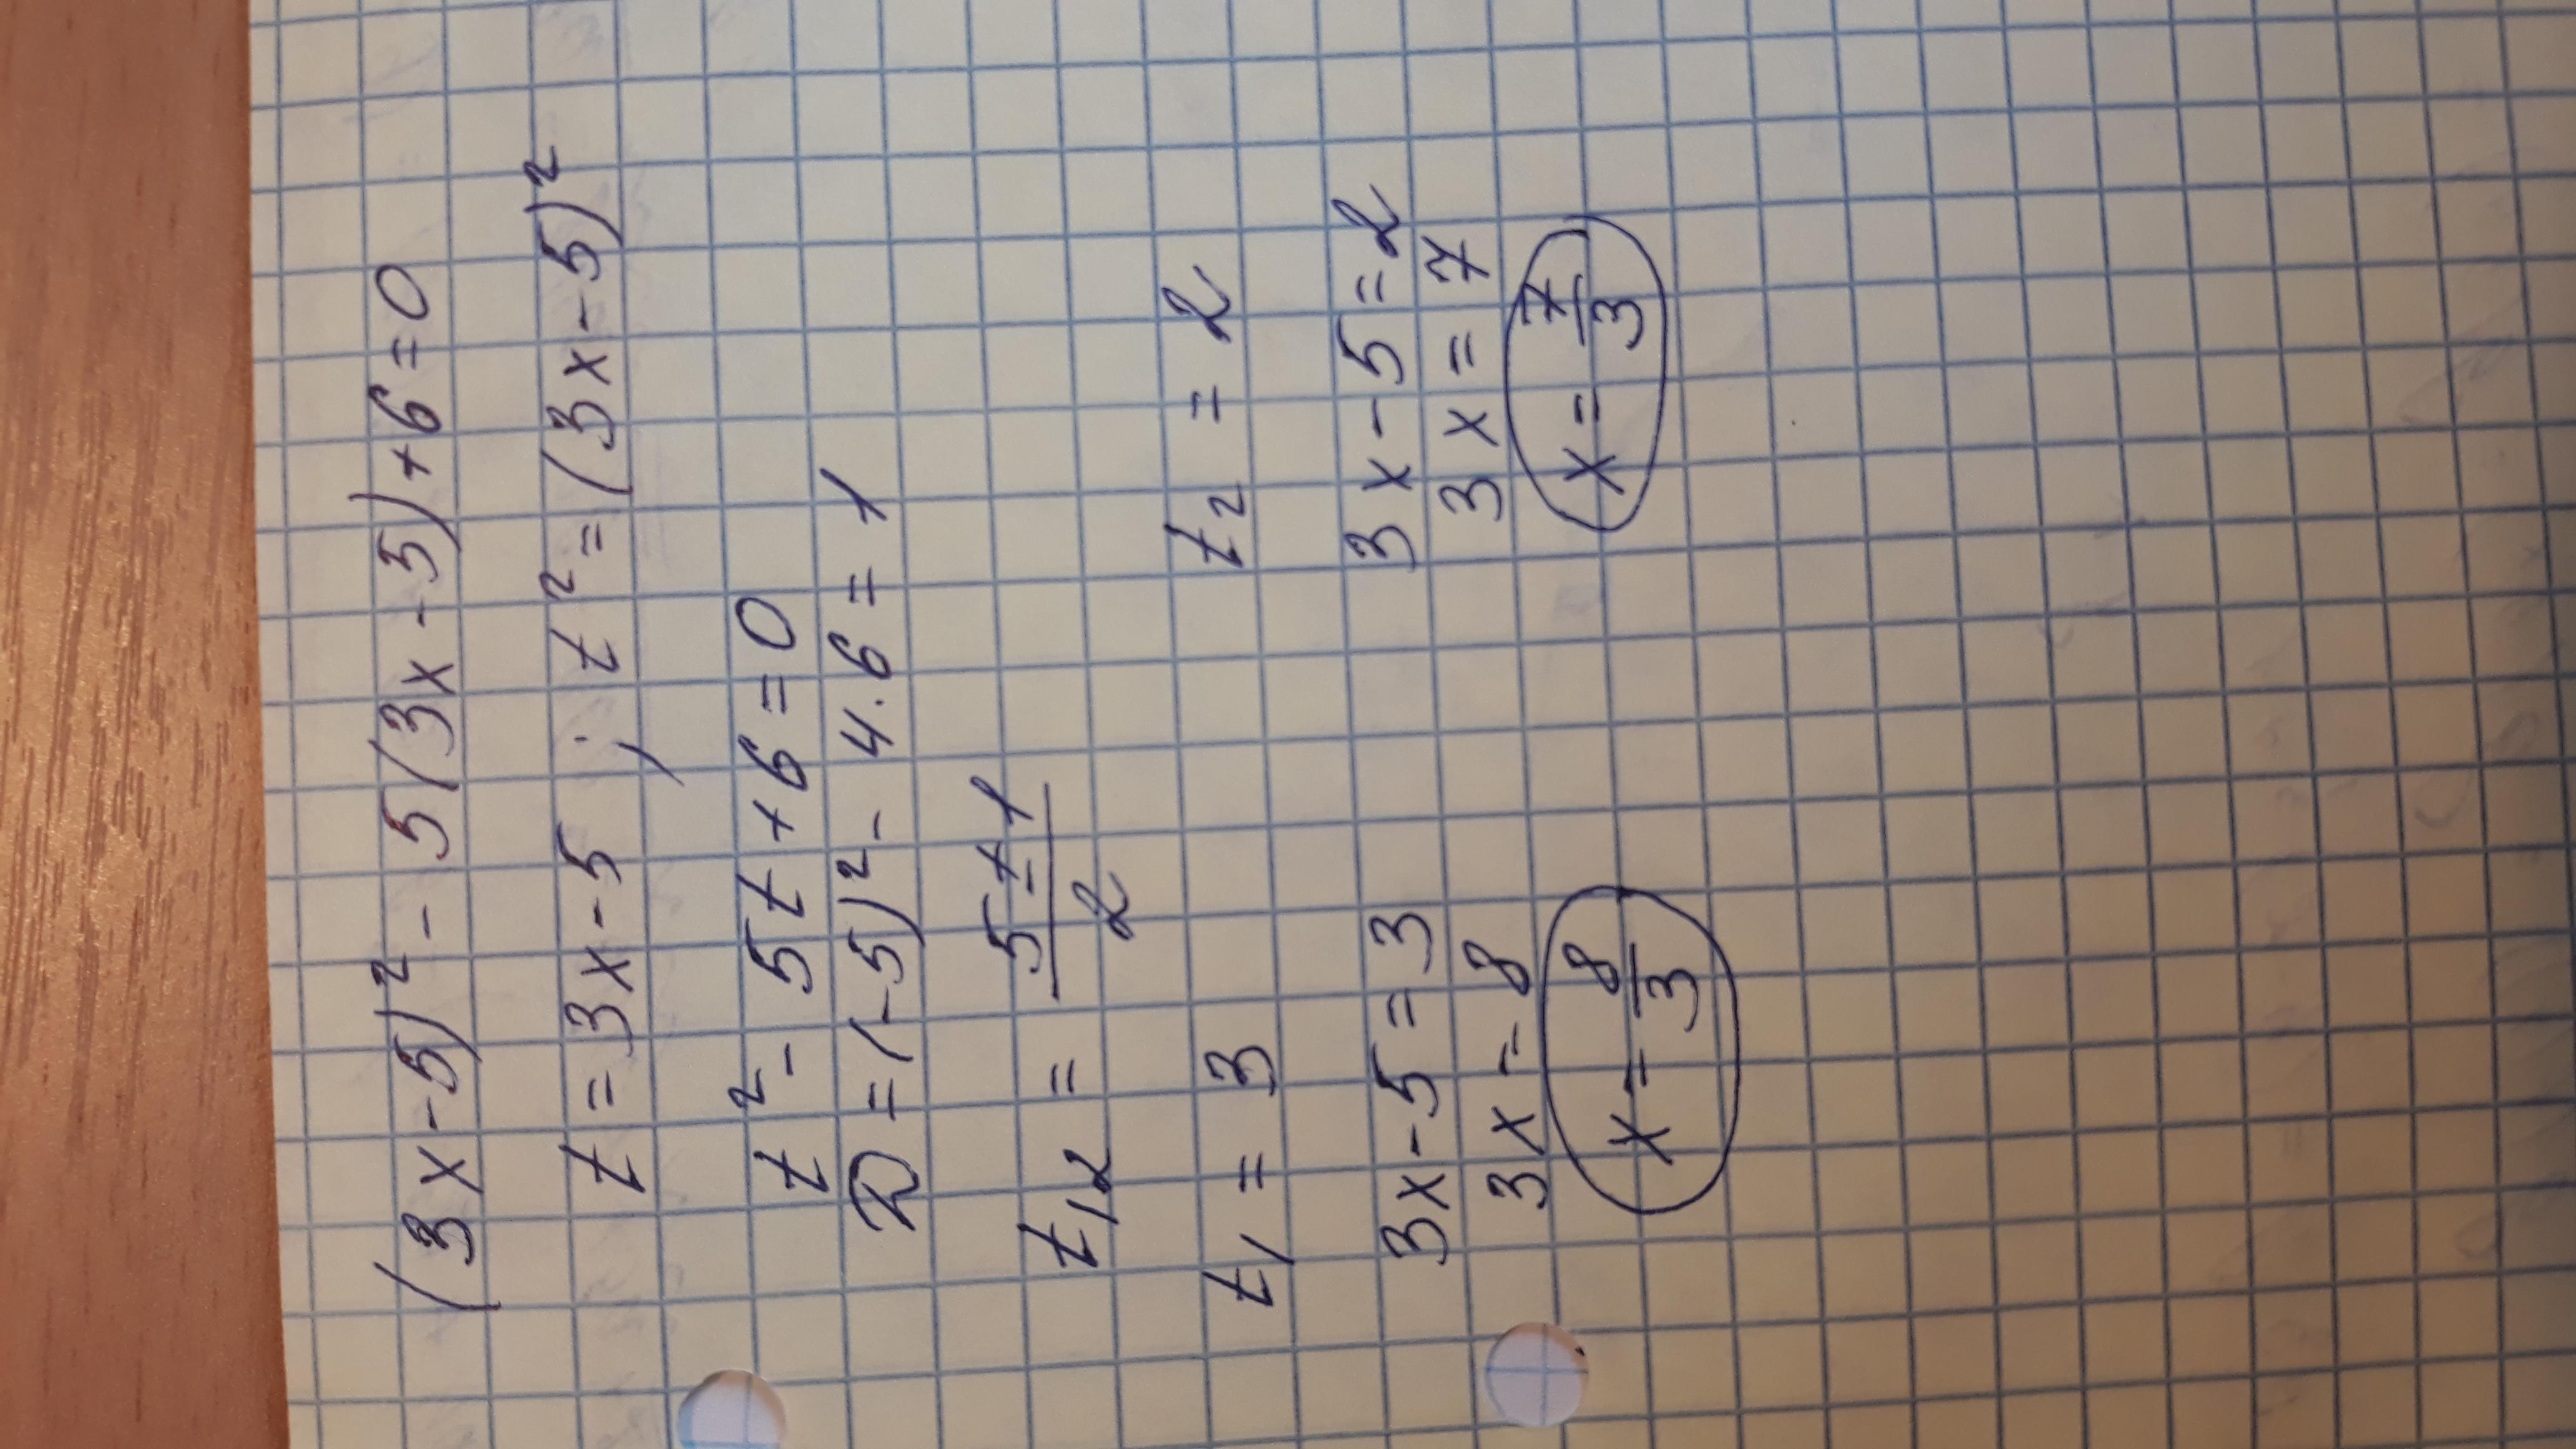 (3x-5)² - 5(3x-5)+6=0
t = 3x-5 ; t² = (3x-5)²
t² - 5t + 6 = 0
D = (-5)² - 4·6 = 1
t₁,₂ = (5±1)/2
t₁ = 3 t₂ = 2
3x-5=3 3x-5=2
3x=8 3x=7
x=8/3 x=7/3